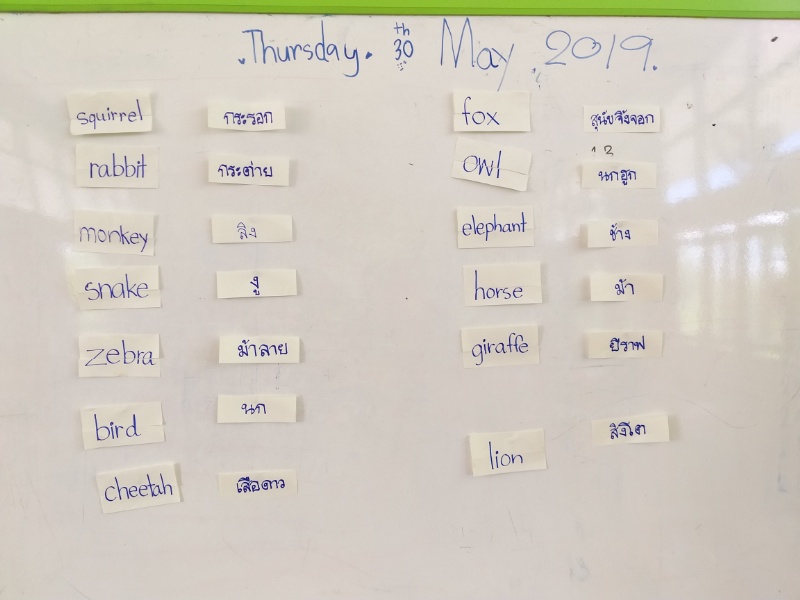 Thursday. 30th May 2019.
squirrel กระรอก
rabbit กระต่าย
monkey ลิง
snake งู
zebra ม้าลาย
bird นก
cheetah เสือดาว
fox สุนัขจิ้งจอก
owl นกฮูก
elephant ช้าง
horse ม้า
giraffe ยีราฟ
lion สิงโต